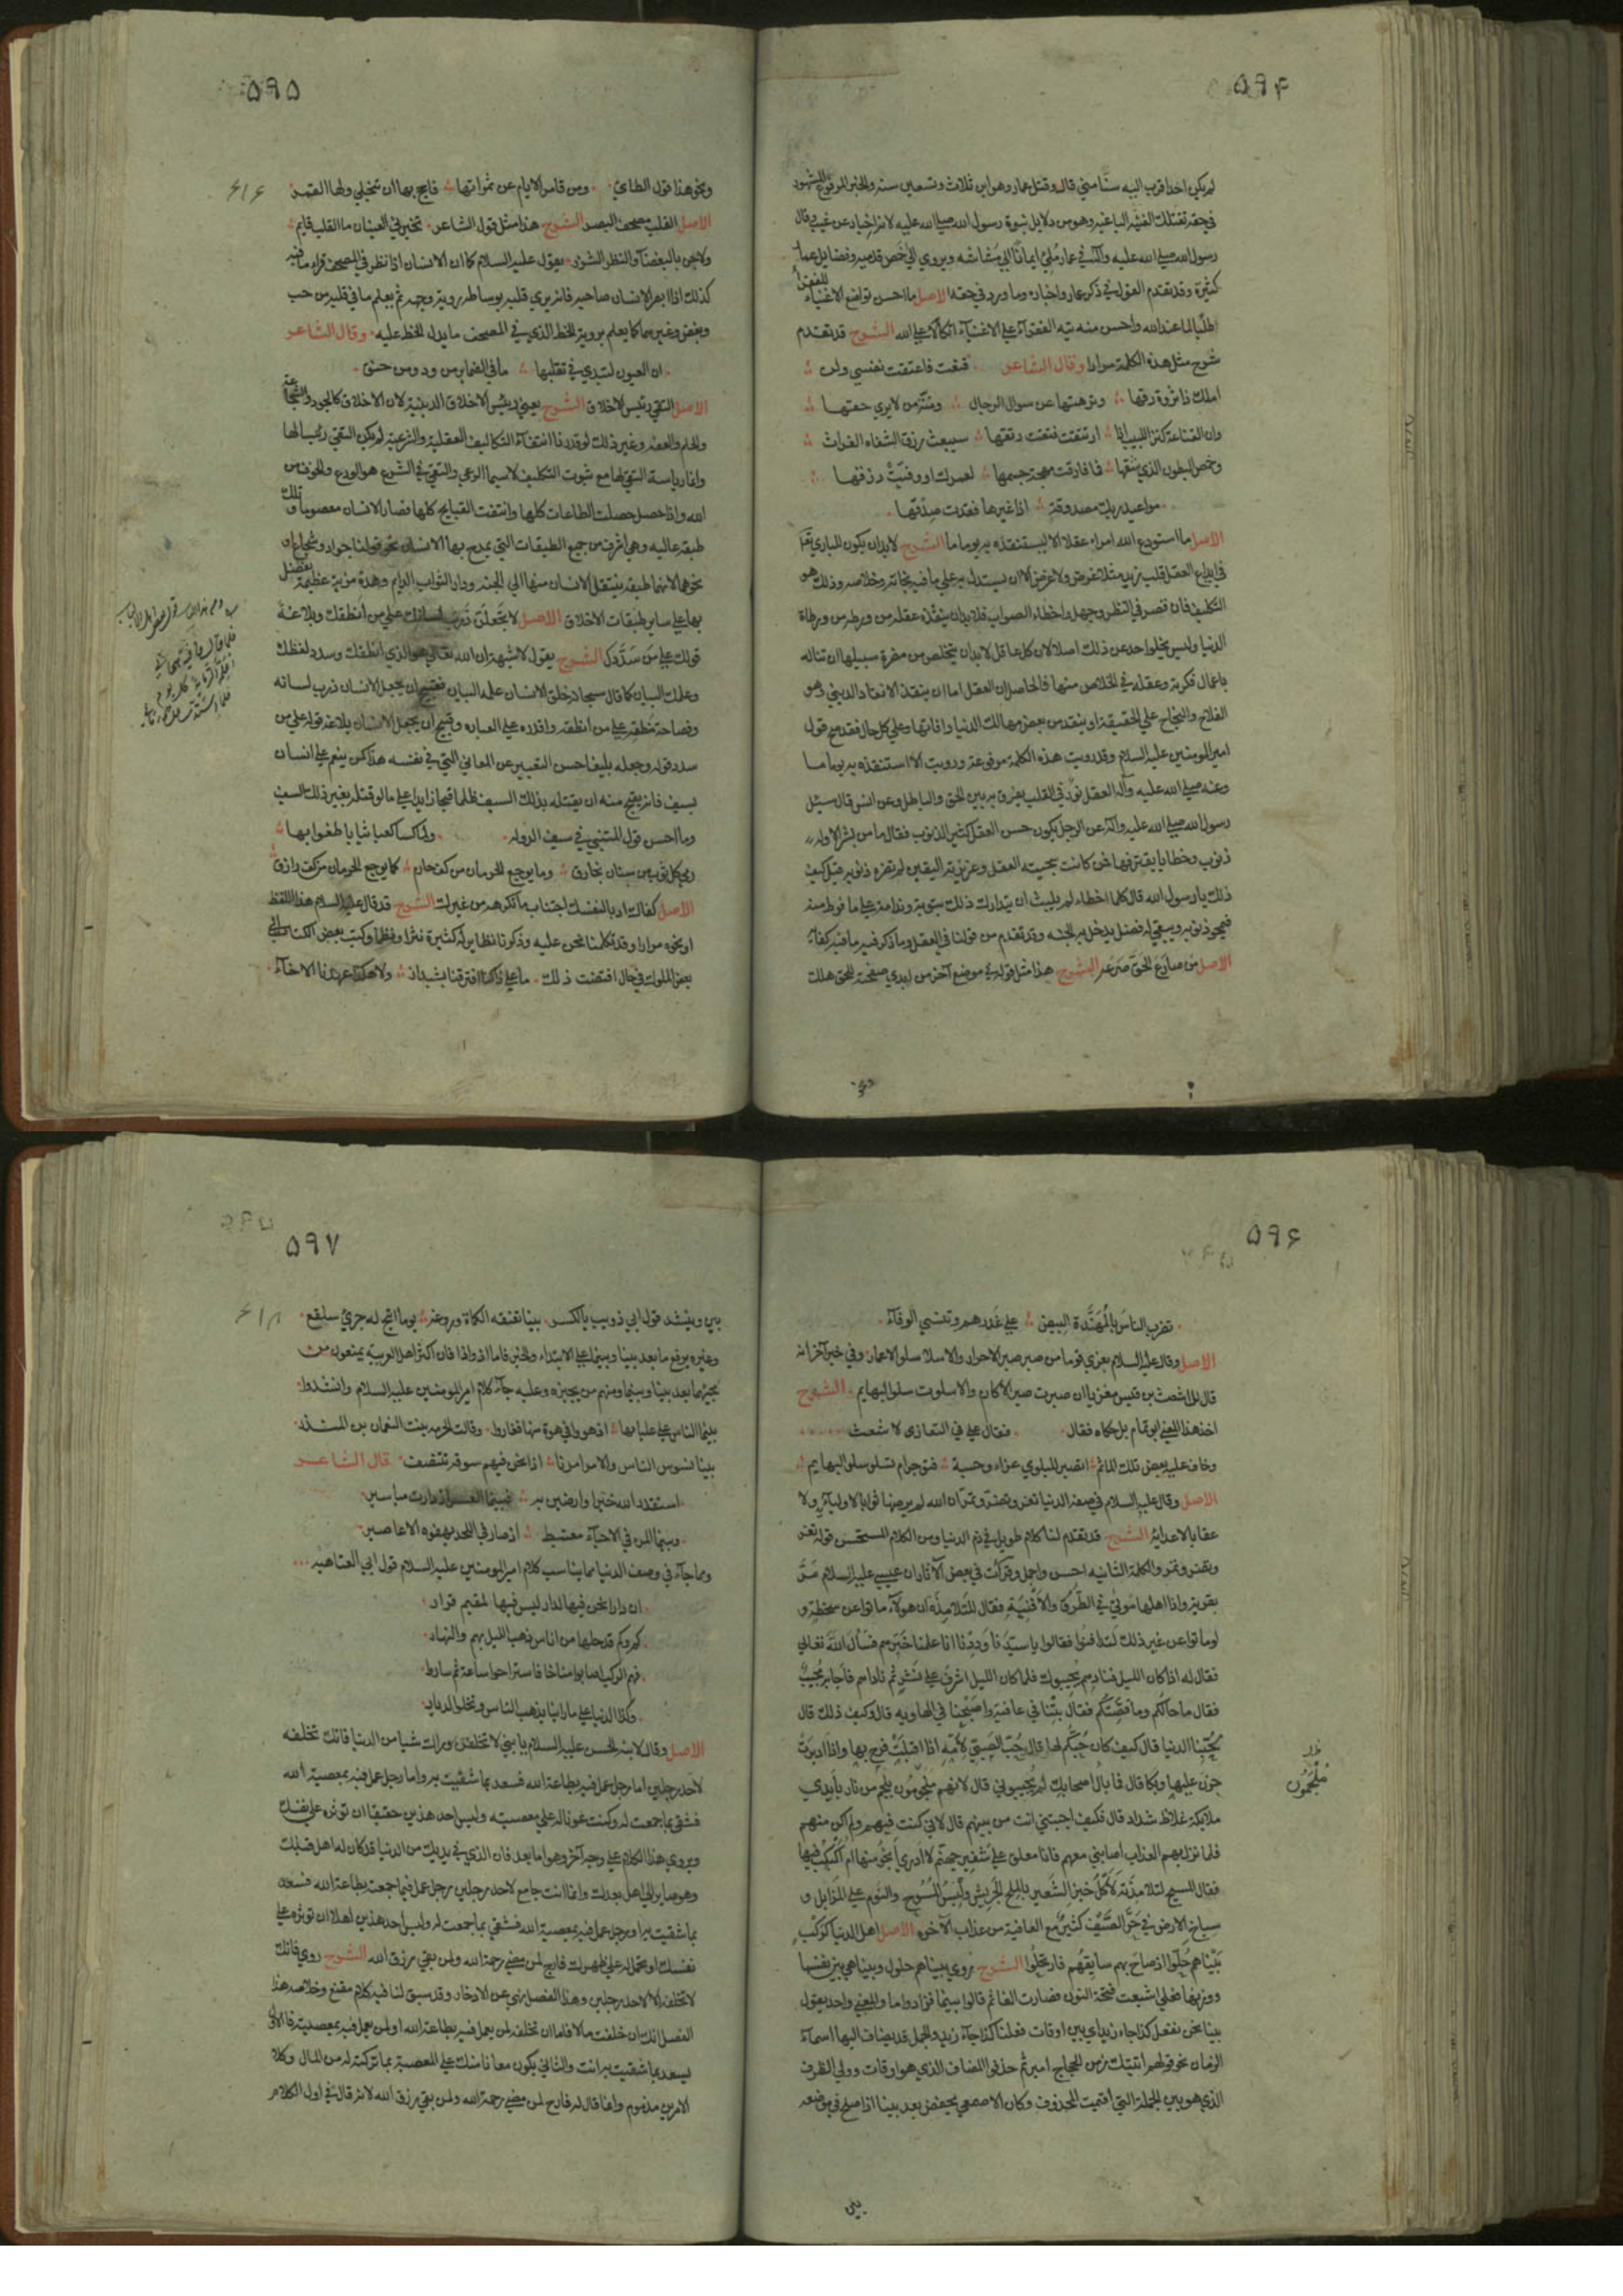 ۵۹۴
لم يكن احد اقرب اليه سنا مني قال وقتل عمار وهو ابن ثلاث وتسعين سنة والخبر المرفوع المشهور
في حقه تقتلك الفئة الباغية وهو من دلايل نبوة رسول الله صلي الله عليه لانه اخبار عن غيب وقال
رسول الله صلي الله عليه وآله في عمار ملئ ايمانا الي مشاشه ويروي الي اخمص قدميه وفضايل عمار
كثيرة وقد تقدم القول في ذكر عمار واخباره وما ورد في حقه الاصل ما احسن تواضع الاغنياء للفقراء
طلبا لما عند الله واحسن منه تيه الفقراء علي الاغنياء اتكالا علي الله الشرح قد تقدم
شرح مثل هذه الكلمة مرارا وقال الشاعر قنعت فاعتقت نفسي ولن
املك ذا ثروة رقها ونزهتها عن سوال الرجال ومنة من لا يري حقها
وان القناعة كنز اللبيب اذا ارتتقت فتقت رتقها سيبعث رزق الشفاه الغراث
وخمص البطون الذي شقها فما فارقت مهجة جسمها لعمرك او وفيت رزقها
مواعيد ربك مصدوقة اذا غيرها فقدت صدقها
الاصل ما استودع الله امراء عقلا الا ليستنقذه به يوما ما الشرح لا بد ان يكون للباري تعالى
في ايداع العقل قلب زيد مثلا غرض ولا غرض الا ان يستدل به علي ما فيه نجاته وخلاصه وذلك هو
التكليف فان قصر في النظر وجهل واخطاء الصواب فلا بد ان ينقذه عقله من ورطة من ورطاة
الدنيا وليس يخلو احد عن ذلك اصلا لان كل عاقل لا بد ان يتخلص من مضرة سبيلها ان تناله
باعمال فكرته وعقله في الخلاص منها فالحاصل ان العقل اما ان ينقذ الانقاذ الديني وهو
الفلاح والنجاح علي الحقيقة او ينقذ من بعض مهالك الدنيا وافاتها وعلي كل حال فقد صح قول
امير المومنين عليه السلام وقد رويت هذه الكلمة مرفوعة ورويت الا استنقذه به يوما ما
وعنه صلي الله عليه وآله العقل نور في القلب يفرق به بين الحق والباطل وعن انس قال سيل
رسول الله صلي الله عليه وآله عن الرجل يكون حسن العقل كثير الذنوب فقال ما من بشر الا وله
ذنوب وخطايا يقترفها فمن كانت سجيته العقل وغريزته اليقين لم تضره ذنوبه قيل كيف
ذلك يا رسول الله قال كلما اخطاء لم يلبث ان يتدارك ذلك بتوبة وندامة علي ما فرط منه
فيمحو ذنوبه ويبقي له فضل يدخل به الجنة وقد تقدم من قولنا في العقل وما ذكر فيه ما فيه كفاء
الاصل من صارع الحق صرعه الشرح هذا مثل قوله في موضع آخر من ابدي صفحته للحق هلك
ونحو
۵۹۵
۶۱۶
ونحو هذا قول الطاي ومن قامر الايام عن ثمراتها فاحج بها ان تنجلي ولها القمر
الاصل القلب مصحف البصر الشرح هذا مثل قول الشاعر تخبرني العينان ما القلب كاتم
ولا جن بالبغضاء والنظر الشزر يقول عليه السلام كما ان الانسان اذا نظر في المصحف قراء ما فيه
كذلك اذا ابصر الانسان صاحبه فانه يري قلبه بوساطة روية وجهه ثم يعلم ما في قلبه من حب
وبغض وغيرهما كما يعلم بروية الخط الذي في المصحف ما يدل الخط عليه وقال الشاعر
ان العيون لتبدي في تقلبها ما في الضماير من ود ومن حنق
الاصل التقي رئيس الاخلاق الشرح يعني رئيس الاخلاق الدينية لان الاخلاق كالجود والشجاعة
والحلم والعفة وغير ذلك لو قدرنا انتفاء التكاليف العقلية والشرعية لم يكن التقي رئيسا لها
وانما رياسة التقي لها مع ثبوت التكليف لا سيما الشرعي والتقي في الشرع هو الورع والخوف من
الله واذا حصل حصلت الطاعات كلها وانتفت القبايح كلها فصار الانسان معصوما وتلك
طبقة عاليه وهي اشرف من جميع الطبقات التي يمدح بها الانسان نحو قولنا جواد وشجاع او
نحوهما لانها طبقة ينتقل الانسان منها الي الجنة ودار الثواب الدايم وهذه مزية عظيمة يفضل
بها علي ساير طبقات الاخلاق الاصل لا تجعلن ذرب لسانك علي من انطقك وبلاغة
قولك علي من سددك الشرح يقول لا شبهة ان الله تعالي هو الذي انطقك وسدد لفظك
وعلمك البيان كما قال سبحانه خلق الانسان علمه البيان فقبيح ان يجعل الانسان ذرب لسانه
وفصاحة منطقه علي من انطقه واقدره علي العبارة وقبيح ان يجعل الانسان بلاغة قوله علي من
سدد قوله وجعله بليغا حسن التعبير عن المعاني التي في نفسه هذا كمن ينعم علي انسان
بسيف فانه يقبح منه ان يقتله بذلك السيف ظلما قبحا زايدا علي ما لو قتله بغير ذلك السيف
وما احسن قول المتنبي في سيف الدوله ولما كسا كعبا ثيابا طغوا بها
رمي كل ثوب من سنان بخارق وما يوجع الحرمان من كف حارم كما يوجع الحرمان من كف رازق
الاصل كفاك ادبا لنفسك اجتناب ما تكرهه من غيرك الشرح قد قال عليه السلام هذا اللفظ
او نحوه مرارا وقد تكلمنا نحن عليه وذكرنا نظاير له كثيرة نثرا ونظما وكتب بعض الكتاب الي
بعض الملوك في حال اقتضت ذلك ما علي ذاكنا افترقنا بشبداذ ولا هكذا عهدنا الاخاء
۵۹۶
تضرب الناس بالمهندة البيض علي غدرهم وتنسي الوفاء
الاصل وقال عليه السلام يعزي قوما من صبر صبر الاحرار والا سلا سلو الاغمار وفي خبر آخر انه
قال للاشعث بن قيس معزيا ان صبرت صبر الاكارم والا سلوت سلو البهايم الشرح
اخذ هذا المعني ابو تمام بل حكاه فقال وقال علي في التعازي لاشعث
وخاف عليه بعض تلك المآثم اتصبر للبلوي عزاء وحسبة فتوجر ام تسلو سلو البهايم
الاصل وقال عليه السلام في صفة الدنيا تغر وتضر وتمر ان الله لم يرضها ثوابا لاوليائه ولا
عقابا لاعدائه الشرح قد تقدم لنا كلام طويل في ذم الدنيا ومن الكلام المستحسن قوله تغر
وتضر وتمر والكلمة الثانية احسن واجمل وقرات في بعض الآثار ان عيسي عليه السلام مر
بقرية واذا اهلها موتي في الطرق والافنية فقال للتلامذة ان هولاء ماتوا عن سخطة و
لو ماتوا عن غير ذلك لتدافنوا فقالوا يا سيدنا وددنا انا علمنا خبرهم فسأل الله تعالي
فقال له اذا كان الليل فنادهم يجيبوك فلما كان الليل اشرف علي نشز ثم ناداهم فاجابه مجيب
فقال ما حالكم وما قصتكم فقال بتنا في عافية واصبحنا في الهاويه قال وكيف ذلك قال
بحبنا الدنيا قال كيف كان حبكم لها قال حب الصبي لامه اذا اقبلت فرح بها واذا ادبرت
حزن عليها وبكا قال فما بال اصحابك لم يجيبوني قال لانهم ملجومون بلجم من نار بايدي
ملايكة غلاظ شداد قال فكيف اجبتني انت من بينهم قال لاني كنت فيهم ولم اكن منهم
فلما نزل بهم العذاب اصابني معهم فانا معلق علي شفير جهنم لا ادري انجو منها ام اكبكب فيها
فقال المسيح لتلامذته لاكل خبز الشعير بالملح الجريش ولبس المسوح والنوم علي المزابل و
سباخ الارض في حر الصيف كثير مع العافية من عذاب الآخره الاصل اهل الدنيا كركب
بيناهم حلوا اذ صاح بهم سايقهم فارتحلوا الشرح يروي بيناهم حلول وبينا هي بين نفسها
ووزنها فعلي اشبعت فتحة النون فصارت الفا ثم قالوا بينما فزادوا ما والمعني واحد يقول
بينا نحن نفعل كذا جاء زيد اي بين اوقات فعلنا كذا جاء زيد والجمل قد يضاف اليها اسماء
الزمان نحو قولهم اتيتك زمن الحجاج امير ثم حذفوا المضاف الذي هو اوقات وولي الظرف
الذي هو بين الجملة التي اقيمت المحذوف وكان الاصمعي يخفض بعد بينا اذا صلح في موضعه
ملجمون
بين
۵۹۷
۶۱۸
بين وينشد قول ابي ذويب بالكسر بينا تعنقه الكماة وروغه يوما اتيح له جرئ سلفع
وغيره يرفع ما بعد بينا وبينما علي الابتداء والخبر فاما اذ واذا فان اكثر اهل العربية يمنعون من
مجيئهما بعد بينا وبينما ومنهم من يجيزه وعليه جاء كلام امير المومنين عليه السلام وانشدوا
بينما الناس علي عليايها اذ هووا في هوة منها فغاروا وقالت الحرقة بنت النعمان بن المنذر
بينا نسوس الناس والامر امرنا اذا نحن فيهم سوقة نتنصف قال الشاعر
استقدر الله خيرا وارضين به فبينما العسر اذ دارت مياسير
وبينما المرء في الاحياء مغتبط اذ صار في اللحد يهفوه الاعاصير
ومما جاء في وصف الدنيا مما يناسب كلام امير المومنين عليه السلام قول ابي العتاهيه
ان دارا نحن فيها لدار ليس فيها لمقيم قرار
كم وكم قد حلها من اناس ذهب الليل بهم والنهار
فهم الركب اصابوا مناخا فاستراحوا ساعة ثم ساروا
وكذا الدنيا علي ما راينا يذهب الناس وتخلو الديار
الاصل وقال لابنه الحسن عليه السلام يا بني لا تخلفن وراك شيا من الدنيا فانك تخلفه
لاحد رجلين اما رجل عمل فيه بطاعة الله فسعد بما شقيت به واما رجل عمل فيه بمعصية الله
فشقي بما جمعت له وكنت عونا له علي معصيته وليس احد هذين حقيقا ان توثره علي نفسك
ويروي هذا الكلام علي وجه آخر وهو اما بعد فان الذي في يديك من الدنيا قد كان له اهل قبلك
وهو صاير الي اهل بعدك وانما انت جامع لاحد رجلين رجل عمل فيما جمعت بطاعة الله فسعد
بما شقيت به او رجل عمل فيه بمعصية الله فشقي بما جمعت له وليس احد هذين اهلا ان توثره علي
نفسك او تحمل له علي ظهرك فارج لمن مضي رحمة الله ولمن بقي رزق الله الشرح روي فانك
لا تخلفه الا لاحد رجلين وهذا الفصل نهي عن الادخار وقد سبق لنا فيه كلام مقنع وخلاصة هذا
الفصل انك ان خلفت مالا فاما ان تخلفه لمن يعمل فيه بطاعة الله او لمن يعمل فيه بمعصيته فالاول
يسعد بما شقيت به انت والثاني يكون معانا منك علي المعصية بما تركته له من المال وكلا
الامرين مذموم وانما قال له فارج لمن مضي رحمة الله ولمن بقي رزق الله لانه قال في اول الكلام